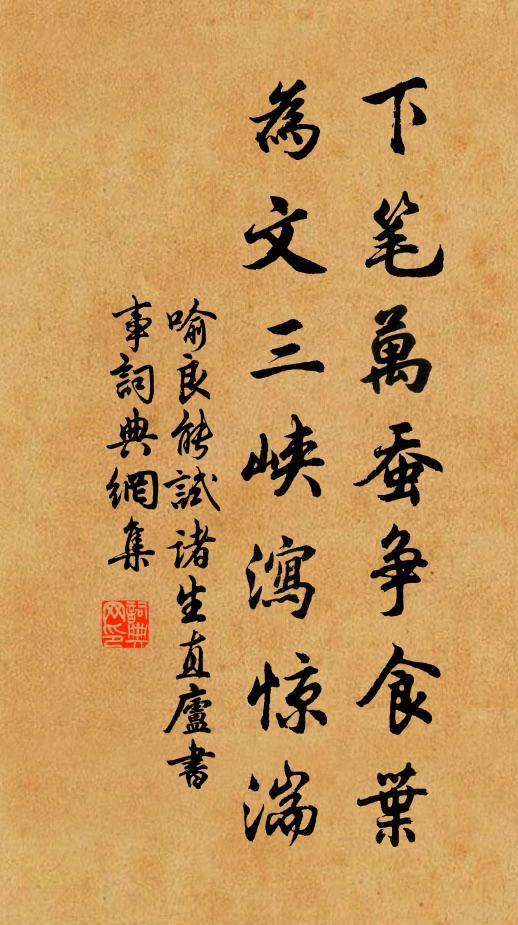 下笔萬蚕争食葉
為文三峡瀉惊湍
喻良能試诸生直廬書
事詞典網集
詞典
网印